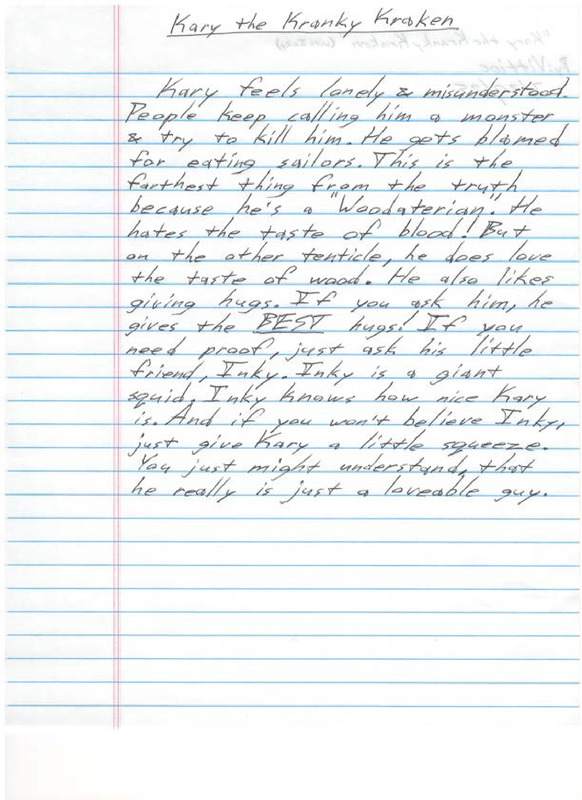 Kary the Kranky Kraken
Kary feels lonely & misunderstood.
People keep calling him a monster
& try to kill him. He gets blamed
for eating sailors. This is the
farthest thing from the truth
because he's a "Woodaterian". He
hates the taste of blood! But
on the other tenticle, he does love
the taste of wood. He also likes
giving hugs. If you ask him, he
gives the BEST hugs! If you
need proof, just ask his little
friend, Inky. Inky is a giant
squid. Inky knows how nice Kary
is. And if you won't believe Inky,
just give Kary a little squeeze.
You just might understand, that
he really is just a loveable guy.